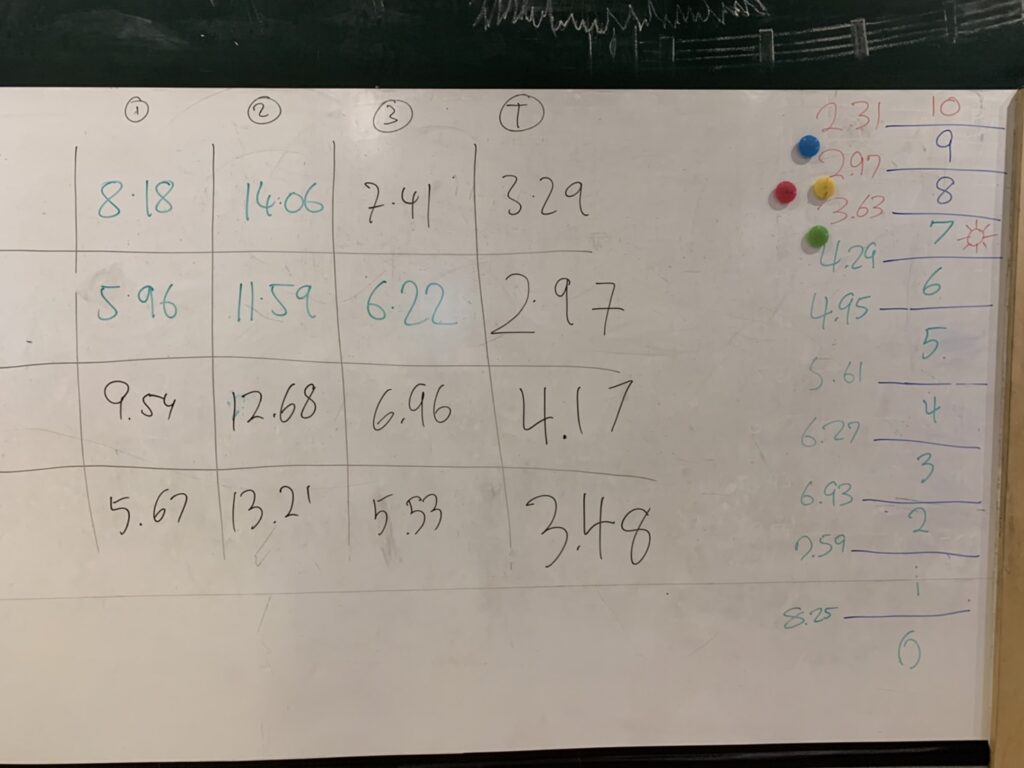 1 2 3 T
8.18 14.06 7.41 3.29
5.96 11.59 6.22 2.97
9.54 12.68 6.96 4.17
5.67 13.21 5.53 3.48
10
2.31
9
2.97
8
3.63
7
4.29
6
4.95
5
5.61
4
6.27
3
6.93
2
7.59
1
8.25
0